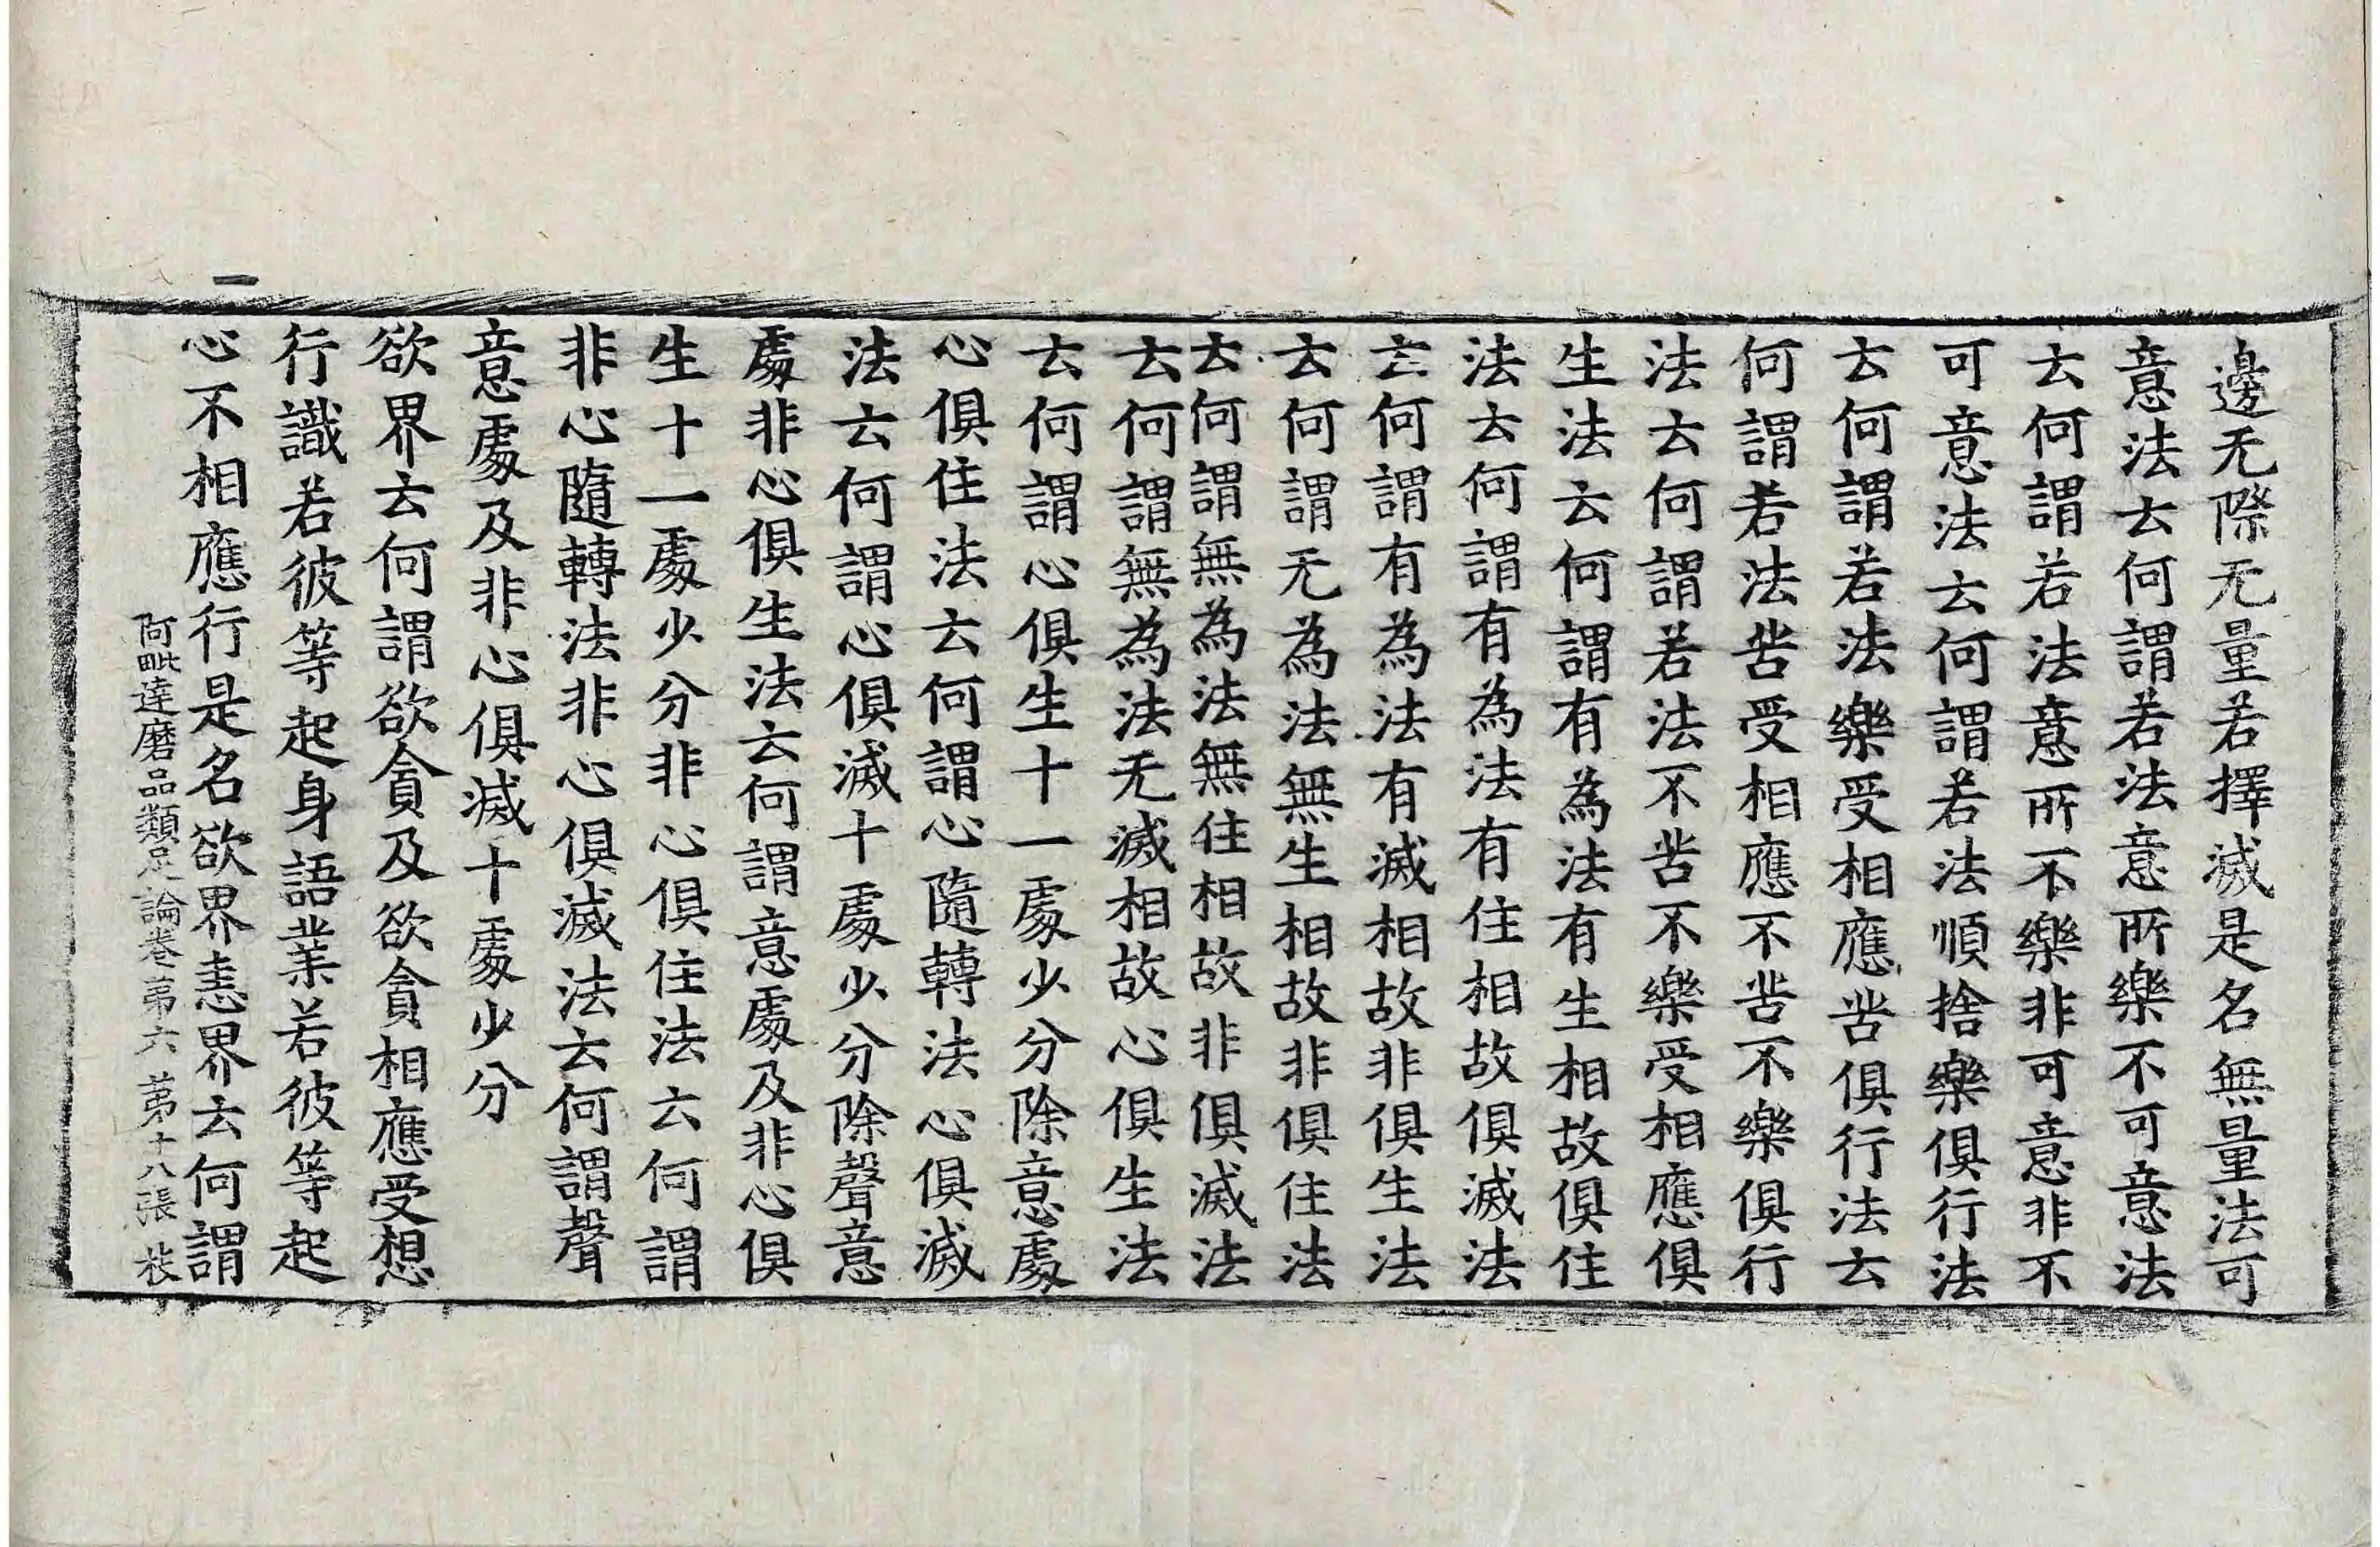 邊无際无量若擇滅是名無量法可
意法云何謂若法意所樂不可意法
云何謂若法意所不樂非可意非不
可意法云何謂若法順捨樂俱行法
云何謂若法樂受相應苦俱行法云
何謂若法苦受相應不苦不樂俱行
法云何謂若法不苦不樂受相應俱
生法云何謂有為法有生相故俱住
法云何謂有為法有住相故俱滅法
云何謂有為法有滅相故非俱生法
云何謂无為法無生相故非俱住法
云何謂無為法無住相故非俱滅法
云何謂無為法无滅相故心俱生法
云何謂心俱生十一處少分除意處
心俱住法云何謂心隨轉法心俱滅
法云何謂心俱滅十處少分除聲意
處非心俱生法云何謂意處及非心俱
生十一處少分非心俱住法云何謂
非心隨轉法非心俱滅法云何謂聲
意處及非心俱滅十處少分
欲界云何謂欲貪及欲貪相應受想
行識若彼等起身語業若彼等起
心不相應行是名欲界恚界云何謂
阿毗達磨品類足論卷第六 第十八張
一